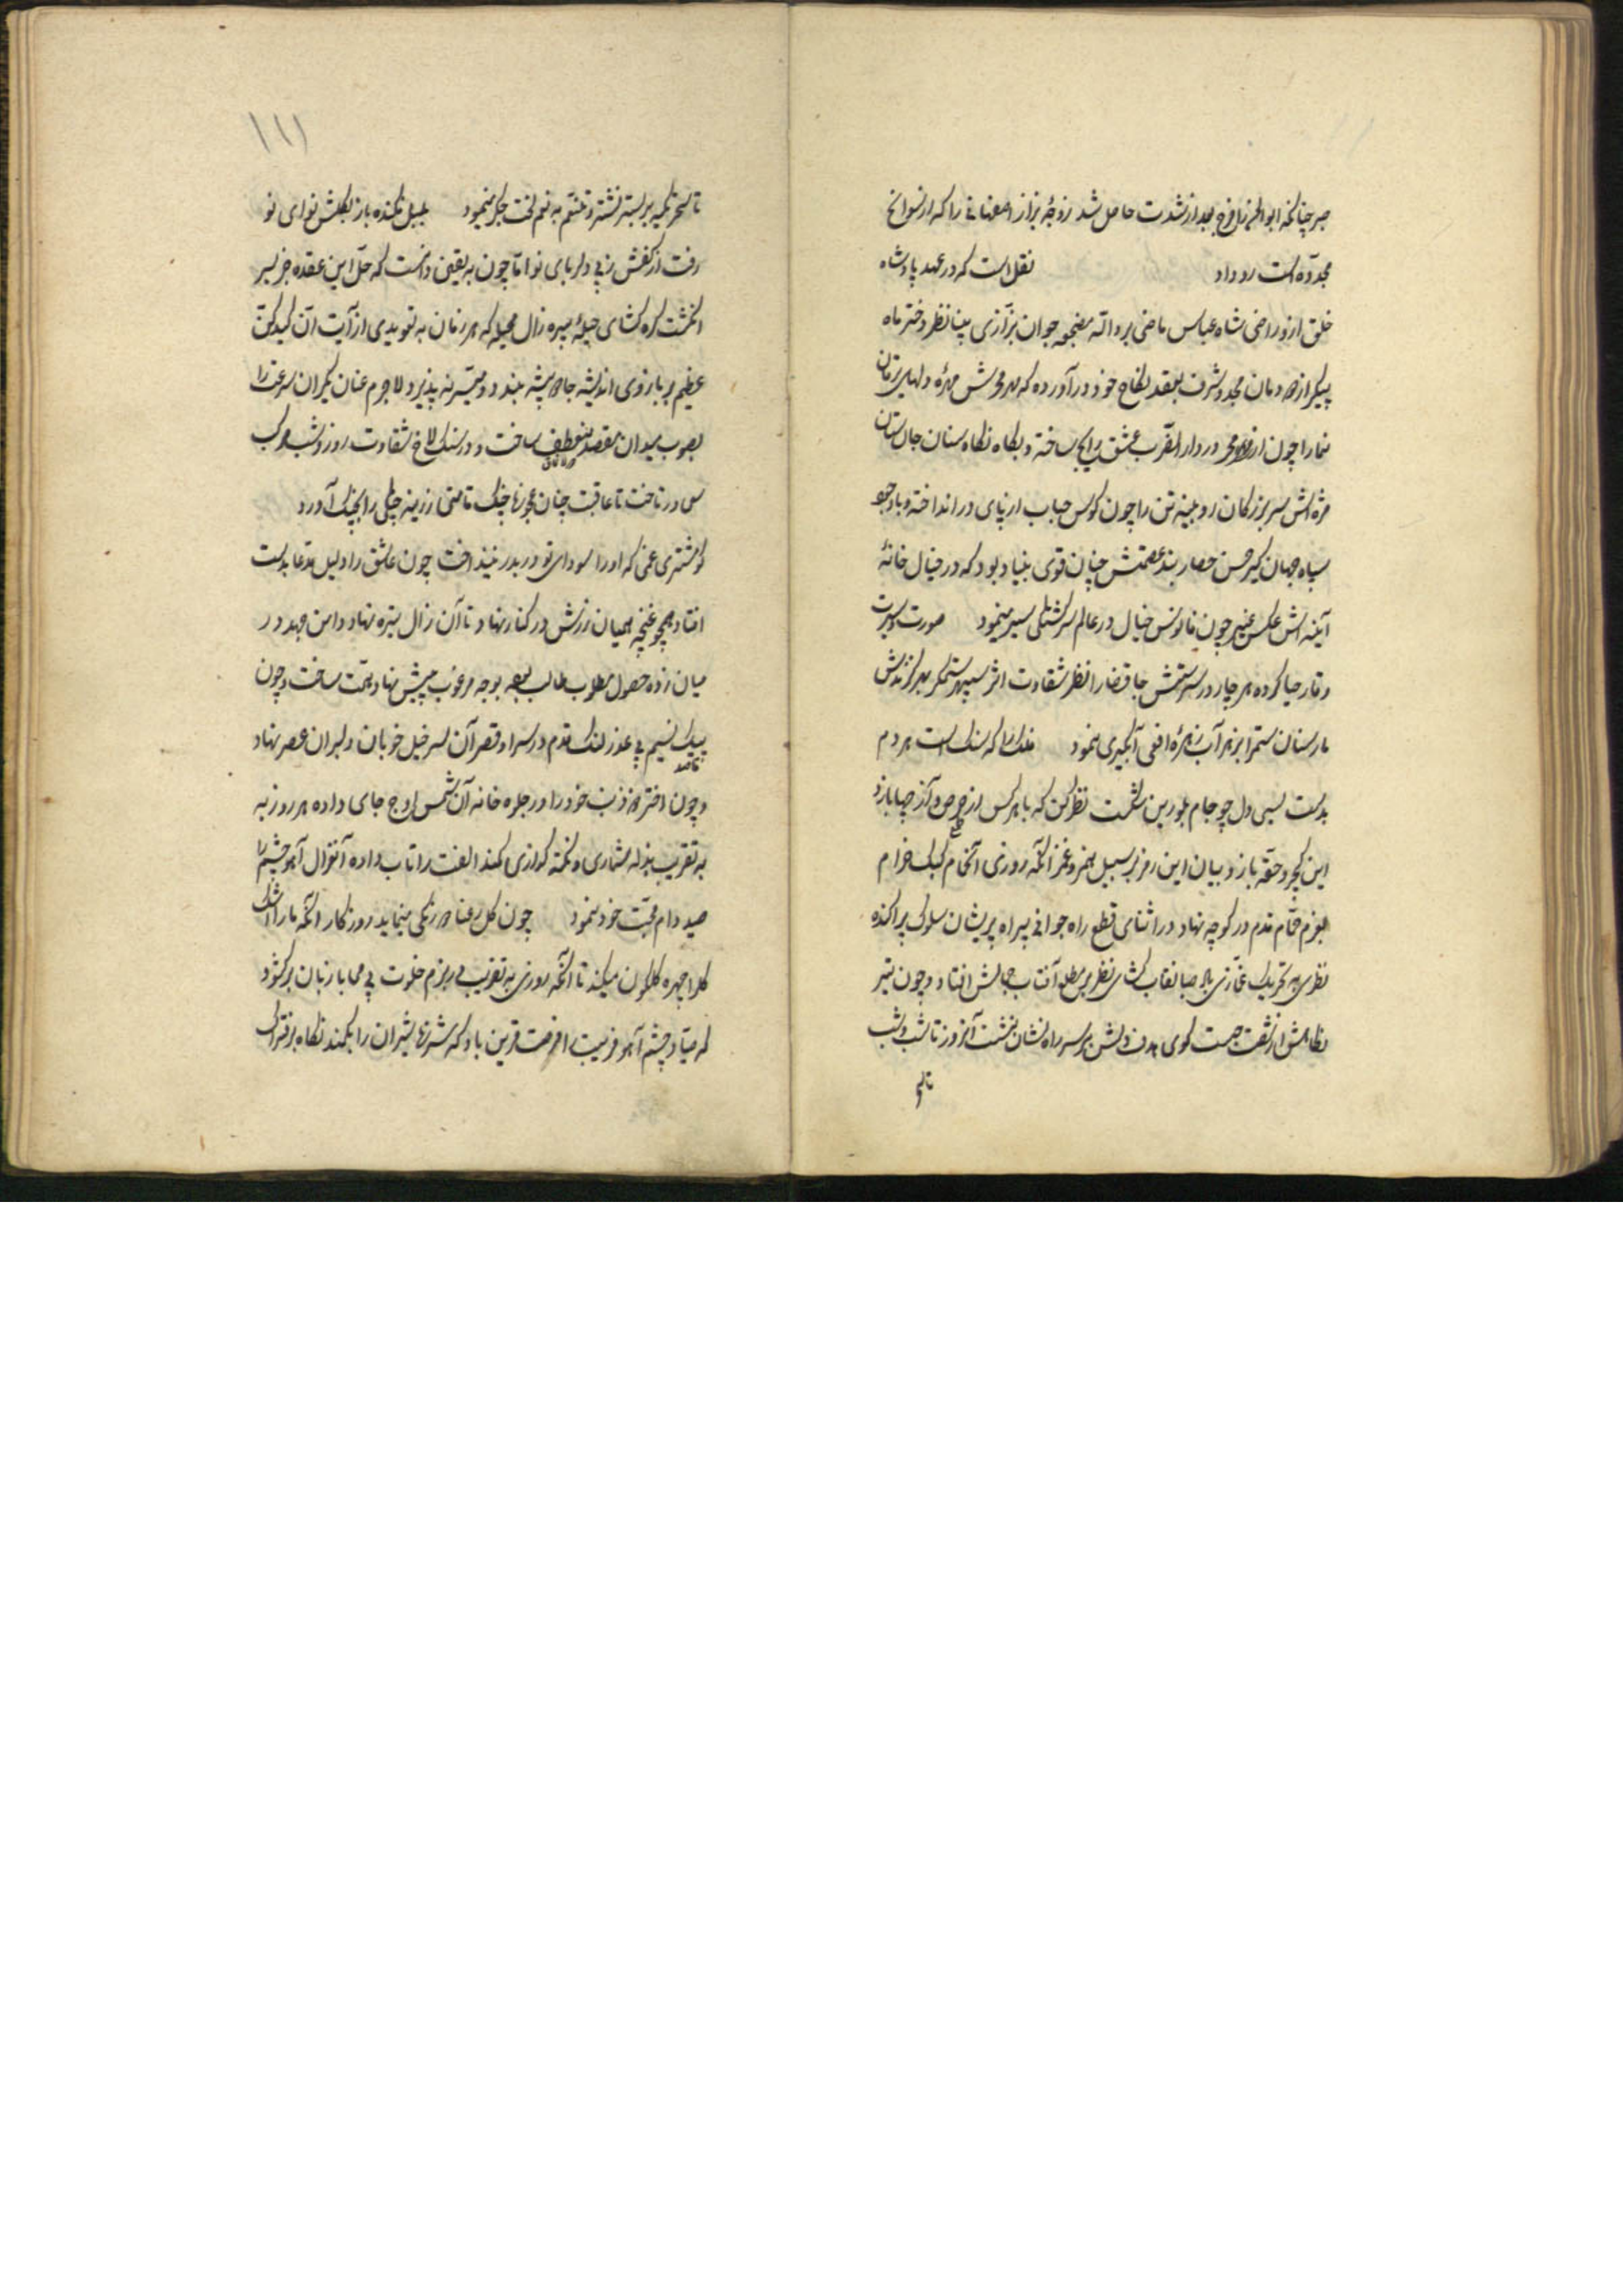 صبر چنانکه ابوالهزیل فرخ بعد از شدت حاصل شد زوجهٔ بزاز اصفهانی را که از نسوانخ
مجدّده است روداد نقل است که در عهد پادشاه
خلق ازو راضی شاه عباس ماضی بردالله مضجعه جوان بزّازی بینا نظر دختر ماه
پیکر از دودمان مجد و شرف بعقد نکاح خود درآورده که مهر مخش مهرهٔ دلهای
نما را چون از در دار الضرب عشق رایج ساخته و بکاه نکاه سنان جان ستان
مژه اش سر بزرکان رویینه تن را چون کوس حباب از پای در انداخته و با وجود
سپاه جهان کیر حسن حصار بند عصمتش چنان قوی بنیاد بود که در خیال خانهٔ
آینه اش عکس غیر چون فانوس خیال در عالم سرکشتکی سیر مینمود صورت و سیرت
وقار حیا کرده هر چار در سرشتش جا قضا را نظر شقاوت اثر سپهر ستمکر بهر کزندش
مار سنان ستم را بزهر آب زهرهٔ افعی آبکیری نمود فلک را که سنک است هر دم
بدست بسی دل چو جام بلورین شکست نظر کن که با هر کس از حرص و آز چها بازد
این کجرو حقّه باز و بیان این رمز بر سبیل همز و غمز آنکه روزی آنخام کبک خرام
بعزم حمّام قدم در کوچه نهاد در اثنای قطع راه جوانی پیراه پریشان سلوک پراکنده
نظری به تحریک غمّازی باد صبا نقاب کشای نظر بر مطلع آفتاب جمالش افتاد و چون تیر
نکاهش از شست جست کوی هدف دلش بر سر راه نشان نشست آنروز تا شب و شب
تا سحر
۱۱۱
تا سحر تکیه بر بستر نشتر و غم به نیم لخت جکر مینمود بلبل نکنده باز بکلشن نوای نو
رفت از کفش زپی دلربای نو امّا چون به یقین دانست که حلّ این عقده جز بسر
انکشت کره کشای حیلهٔ پیره زال محیله که هر زمان به تعویذی از آیت انّ کیدکنّ
عظیم بر بازوی اندیشه جادو پیشه بندد میسّر نه پذیرد لاجرم عنان یکران سرعت را
بصوب میدان مقصد منعطف ساخت و در سنک لاخ شقاوت روز و شب مرکب
سی در تاخت تا عاقبت چنان عجوزهٔ چنک قامتی رزینه چنکی را بچنک آورد
کو مشتری غمی که اورا سودای تو دربدر نینداخت چون عاشق را دلیل مدّعا بدست
افتاد همچو غنچه همیان زرش در کنار نهاد تا آن زال تیره نهاد دامن جهد در
میان زده حصول مطلوب طالب تبعه بوجه مرغوب پیش نهاد همّت ساخت و چون
پیک نسیم بی عذر لنک قدم در سراو قصر آن سرخیل خوبان و دلبران عصر نهاد
و چون اختر خود را در جلوه خانه آن شمس اوج جای داده هر روز به
به تقریب بذله شماری و نکته کذاری کمند الفت را تاب داده آنغزال آهو چشم را
صید دام محبّت خود نمود چون کل رعنا دو رنکی مینماید روزکار آنکه مارا اشک
کلرا چهره کلکون میکند تا آنکه روزی به تقریبی در بزم خلوت بی محابا زبان برکشود
که صیّاد چشم آهو فریبت را فرصت قرین باد که شرزهٔ شیران را بکمند نکاه بر فتراک